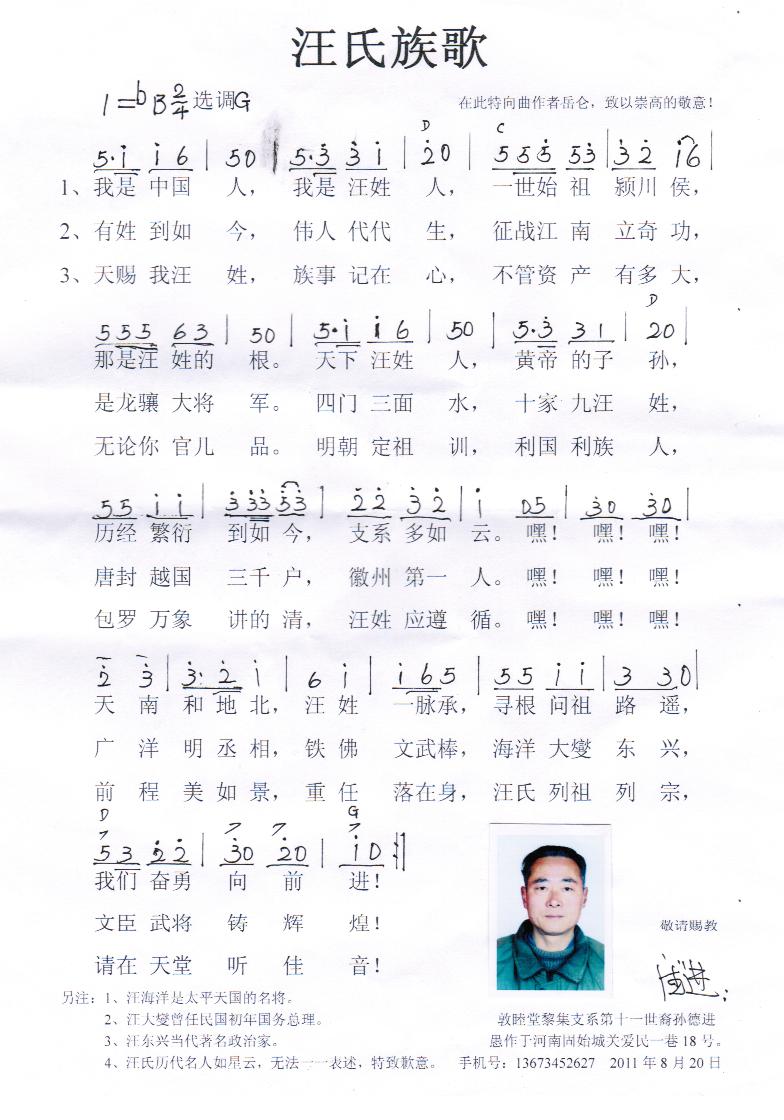 汪氏族歌
1=bB 2/4 选调G
在此特向曲作者岳仑，致以崇高的敬意！
D C
5·i i 6 | 50 | 5·3 3 i | 20 | 555 53 | 32 i6 |
1、我是 中国 人， 我是 汪姓 人， 一世始 祖 颍川 侯，
2、有姓 到如 今， 伟人 代代 生， 征战江 南 立奇 功，
3、天赐 我汪 姓， 族事 记在 心， 不管资 产 有多 大，
D
555 63 | 50 | 5·i i 6 | 50 | 5·3 31 | 20 |
那是汪 姓的 根。 天下 汪姓 人， 黄帝 的子 孙，
是龙骧 大将 军。 四门 三面 水， 十家 九汪 姓，
无论你 官儿 品。 明朝 定祖 训， 利国 利族 人，
55 i i | 3 33 53 | 22 32 | i 05 | 30 30 |
历经 繁衍 到如 今， 支系 多如 云。 嘿！ 嘿！ 嘿！
唐封 越国 三千 户， 徽州 第一 人。 嘿！ 嘿！ 嘿！
包罗 万象 讲的 清， 汪姓 应遵 循。 嘿！ 嘿！ 嘿！
2 3 | 3·2 i | 6 i | i65 | 55 i i | 3 30 |
天 南 和 地 北， 汪 姓 一脉承， 寻根 问祖 路 遥，
广 洋 明 丞 相， 铁 佛 文武棒， 海洋 大燮 东 兴，
前 程 美 如 景， 重 任 落在身， 汪氏 列祖 列 宗，
D G
53 22 | 30 20 | i0 :||
我们 奋勇 向 前 进！
文臣 武将 铸 辉 煌！
请在 天堂 听 佳 音！
敬请赐教
另注：1、汪海洋是太平天国的名将。
2、汪大燮曾任民国初年国务总理。
3、汪东兴当代著名政治家。
4、汪氏历代名人如星云，无法一一表述，特致歉意。
敦睦堂黎集支系第十一世裔孙德进
愚作于河南固始城关爱民一巷18号。
手机号：13673452627 2011年8月20日